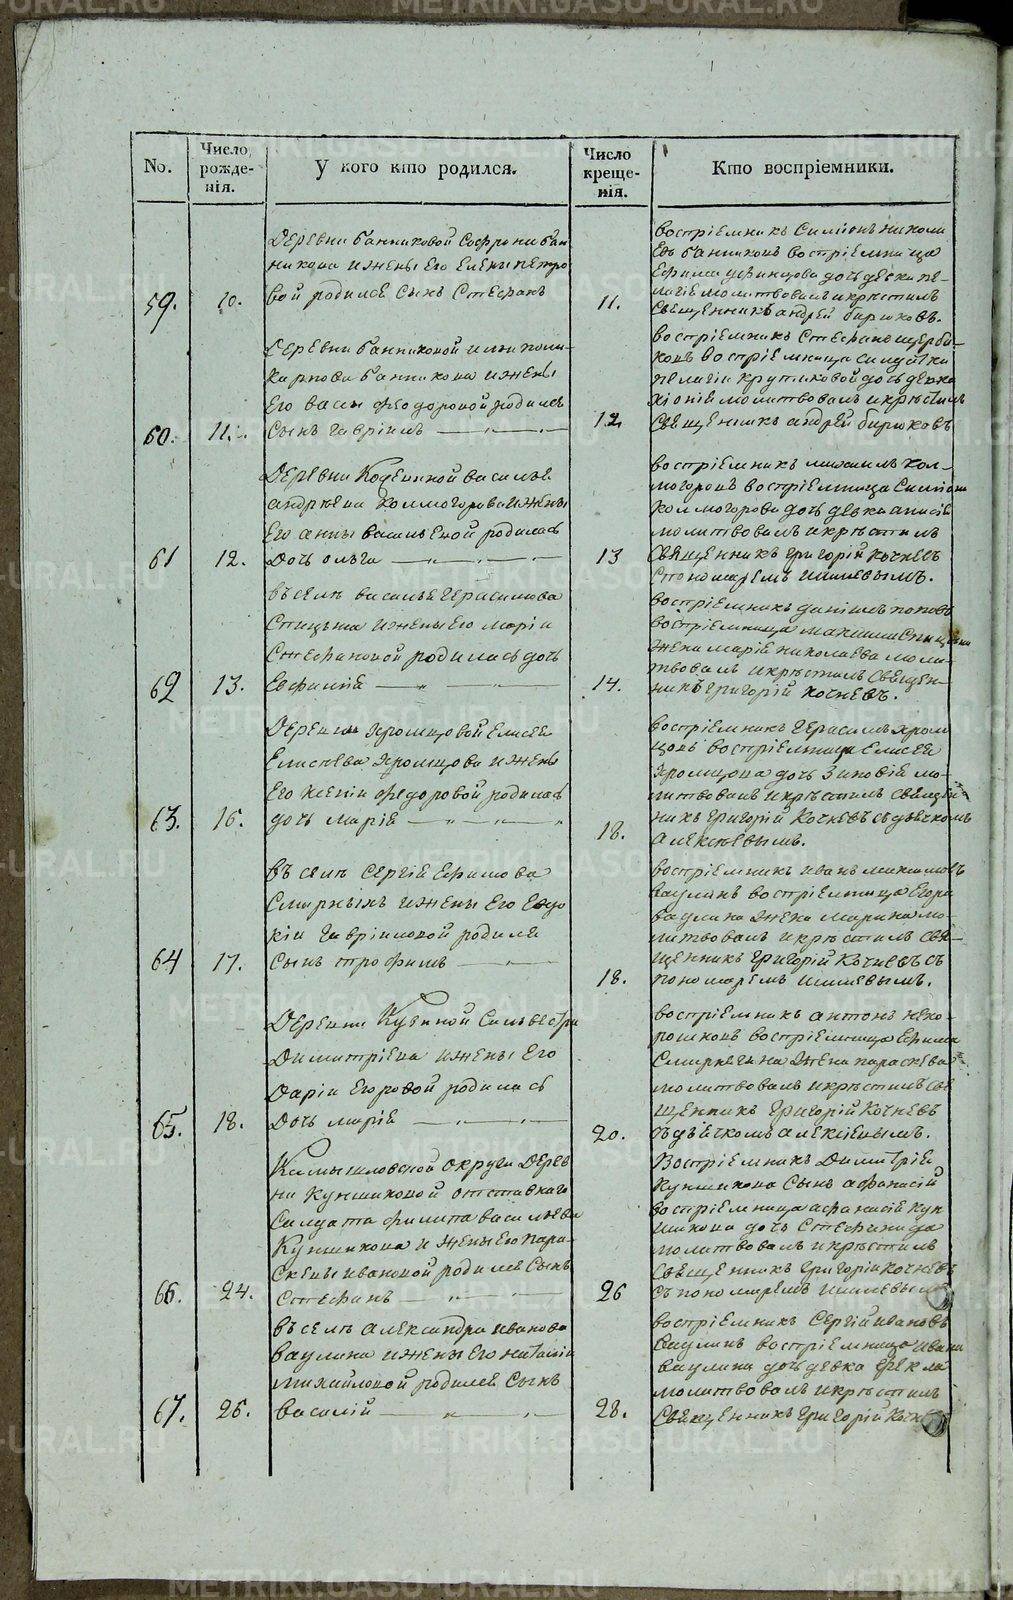 No.
Число рожде-
нія.
У кого кто родился.
Число креще-
нія.
Кто воспріемники.
59.
10.
деревни банниковой Софрони бан
никова и жены его Елены петро
вой родился сынъ Стефанъ
11.
воспріемникъ Симіонъ никола
евъ банниковъ воспріемница
дочь девка пе-
лагіе молитвовалъ и крѣстилъ
священникъ андрей бирюковъ.
60.
11.
деревни банниковой поли-
карпова банникова и жены
его васы феодоровой родился
сынъ гавріилъ
12
воспріемникъ Стефанъ щерба-
ковъ воспріемница салдатка
пелагіи крутиковой дочь девка
хіоніе молитвовалъ и крѣстилъ
священникъ андрей бирюковъ
61
12.
деревни василье
андрѣева Колмогорова и жены
его анны васильевой родилась
дочь ольга
13
воспріемникъ михаилъ кол-
могоровъ воспріемница Симіона
Колмогорова дочь девка анисіе
молитвовалъ и крѣстилъ
священникъ григорій кочневъ
с пономаремъ
62
13.
въ селѣ василье герасимова
Спицына и жены его маріи
Стефановой родилась дочь
Евфиміе
14.
воспріемникъ даніилъ поповъ
воспріемница максима Спицына
жена маріе николаева моли-
твовалъ и крѣстилъ священ-
никъ григорій кочневъ.
63.
16.
деревни хромцовой Елисее
Елисѣева хромцова и жены
его ксеніи федоровой родилась
дочь маріе
18.
воспріемникъ герасимъ хром
цовъ воспріемница Елисее
хромцова дочь зиновіе мо-
литвовалъ и крѣстилъ священ
никъ григорій Кочневъ съ дьячкомъ
алексѣевымъ.
64
17.
въ селѣ Сергіе Ефимова
Смирныхъ и жены его Евдо
кіи гавріиловой родился
сынъ трофимъ
18.
воспріемникъ иванъ максимовъ
ваулинъ воспріемница Егора
ваулина жена марина мо-
литвовалъ и крѣстилъ свя-
щенникъ григорій Кочневъ съ
пономаремъ
65.
18.
деревни Сильвестра
димитріева и жены его
даріи Егоровой родилась
дочь маріе
20.
воспріемникъ антонъ
воспріемница Ефима
жена параскева
молитвовалъ и крѣстилъ свя
щенникъ григорій Кочневъ
съ дьячкомъ алексіевымъ.
66.
24.
Камышловской округи дерев
ни Кунщиковой отставнаго
салдата филипа васильева
Кунщикова и жены его пара-
скевы ивановой родился сынъ
Стефанъ
26
воспріемникъ димитріе
Кунщикова сынъ афанасій
воспріемница афанасіе кун
щикова дочь Стефанида
молитвовалъ и крѣстилъ
священникъ григорій кочневъ
съ пономаремъ
67.
26.
въ селѣ александра иванова
ваулина и жены его наталіи
михайловой родился сынъ
василій
28.
воспріемникъ Сергій ивановъ
ваулинъ воспріемница ивана
ваулина дочь девка фекла
молитвовалъ и крѣстилъ
священникъ григорій Кочневъ
METRIKI.GASO-URAL.RU